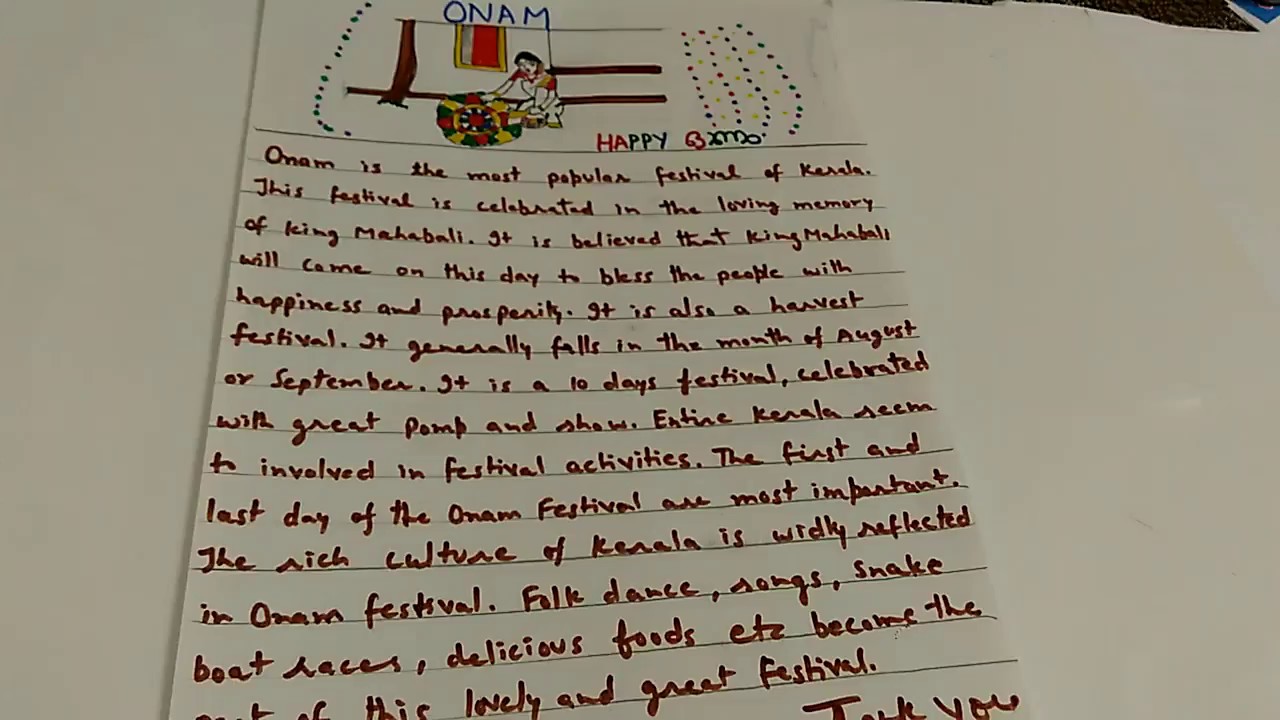 ONAM
HAPPY ഓണം
Onam is the most popular festival of Kerala.
This festival is celebrated in the loving memory
of king Mahabali. It is believed that King Mahabali
will come on this day to bless the people with
happiness and prosperity. It is also a harvest
festival. It generally falls in the month of August
or September. It is a 10 days festival, celebrated
with great Pomp and show. Entire Kerala seem
to involved in festival activities. The first and
last day of the Onam Festival are most important.
The rich culture of Kerala is widly reflected
in Onam festival. Folk dance, songs, snake
boat races, delicious foods etc become the
part of this lovely and great festival.
you